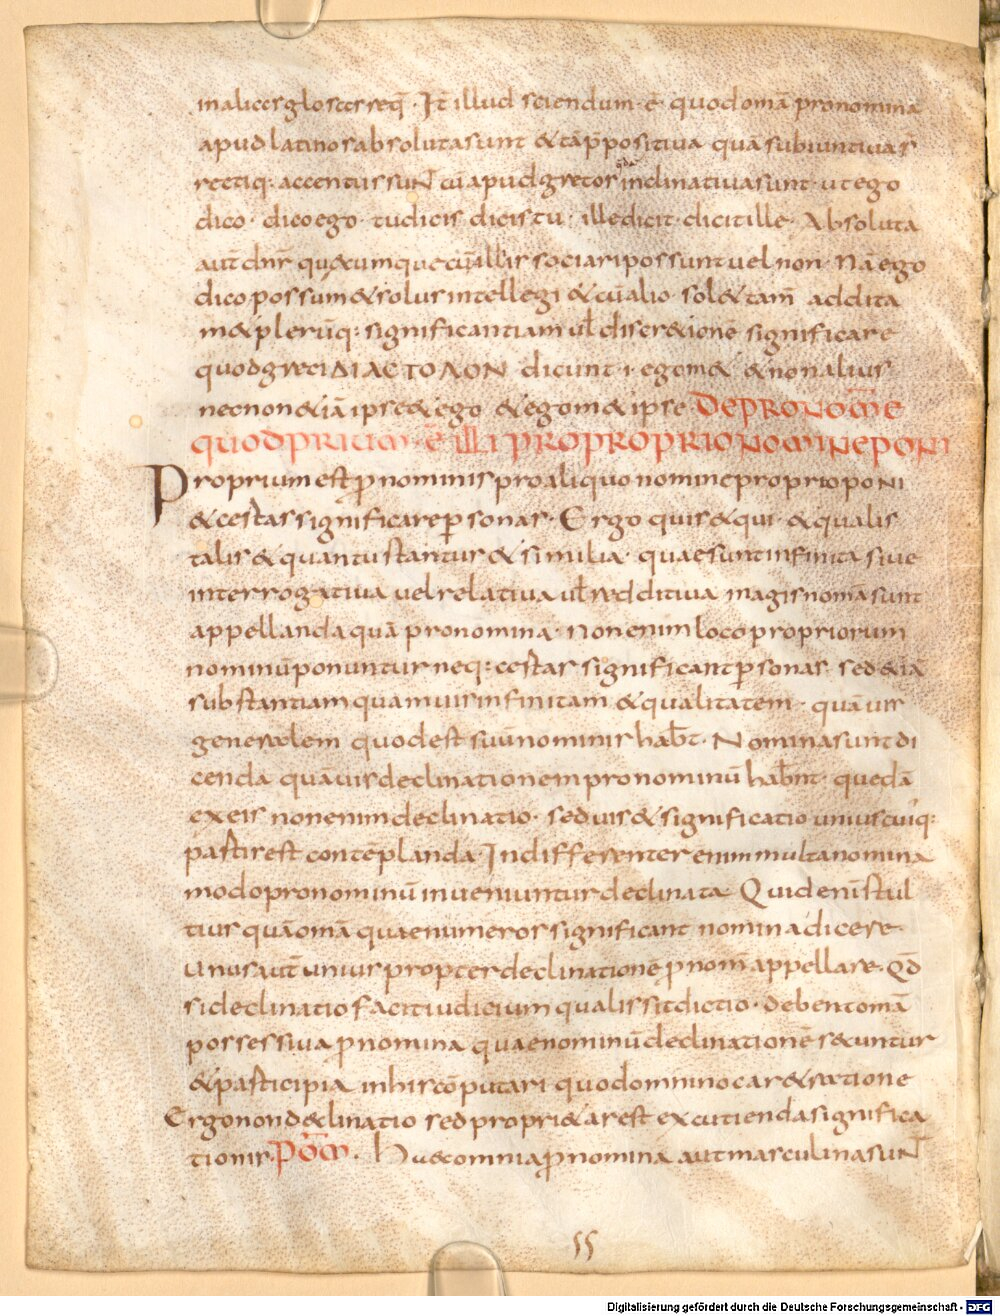 in alicer glosceseq̄ · It illud sciendum · ē quod omā pronomina
apud latinos absoluta sunt & tā p̄positiua quā subiuntiua s̄
rectiq: accentus suN cū apud grecos quędā inclinatiua sunt · ut ego
dico · dico ego · tu dicis dicis tu · ille dicit · dicit ille · Absoluta
aut̄ dnr̄ quęcumque cū illis sociari possunt uel non · Nā ego
dico possum & solus intellegi & cū alio · sol& tam̄ addita
m& plerūq: significantiam ul̄ discr&ionē significare
quod greci DIACTOΛON dicunt · i · egom& & non alius
necnon & iā ipse & ego & egom& ipse DEPRONOM̄E
QUOD PRIUM · ē · ILLI PRO PROPRIO NOMINE PONI
Proprium est p̄nominis pro aliquo nomine proprio poNI
& certas significare personas · Ergo quis & qui · & qualis
talis & quantus tantus & similia · quae sunt infinita siue
interrogatiua uel relatiua ul̄ redditiua magis nomā sunt
appellanda quā pronomina · Non enim loco propriorum
nominū ponuntur neq: certas significant personas · sed & iā
substantiam quamuis infinitam & qualitatem · quāuis
generalem quod est suū nominis hab̄t · Nomina sunt di
cenda quāuis declinationem pronominū habnt̄ · quedā
ex eis non enim declinatio · sed uis & significatio uniuscuiq:
partis est contēplanda · Indifferenter enim multa nomina
modo pronominū inueniuntur declinata Quid enī stul
tius quā omā quae numeros significant nomina dicere ·
unus aut̄ unius propter declinationē p̄nom̄ appellare · Qd̄
si declinatio facit iudicium qualis sit dictio · debent omā
possessiua p̄nomina quae nominū declinationē secuntur
& participia in his cōputari quod omnino car& ratione
Ergo non declinatio sed propri&as est excutienda significa
tionis · PŌM · Huęc omnia p̄nomina aut masculina suNT
55
Digitalisierung gefördert durch die Deutsche Forschungsgemeinschaft - DFG